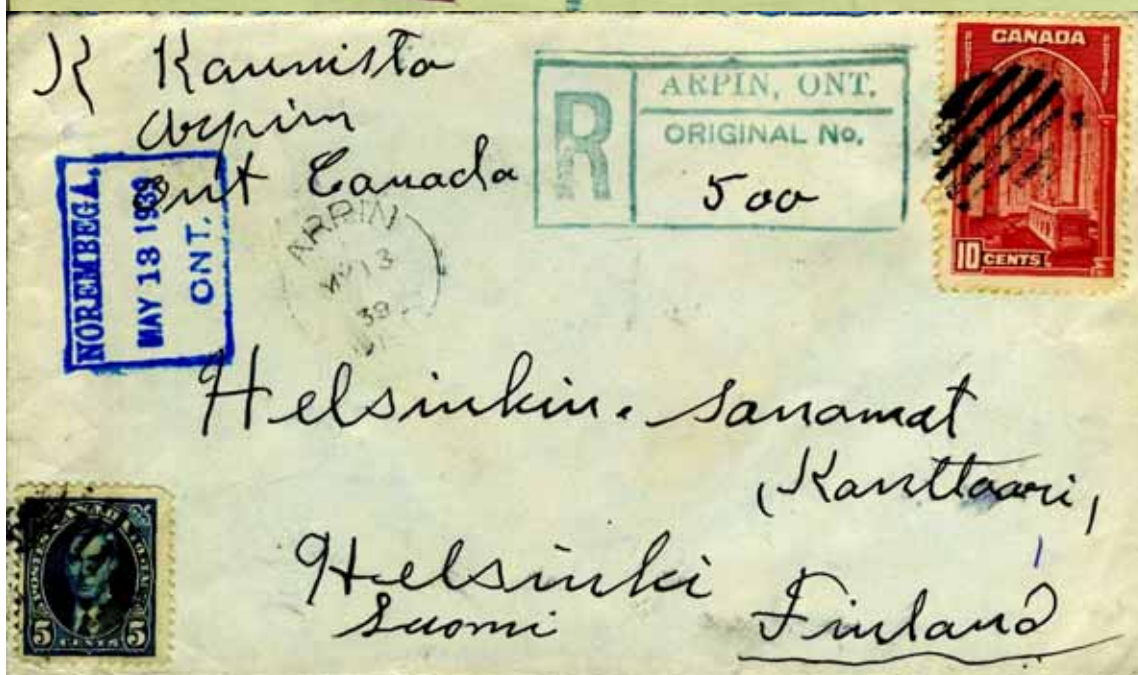 K Kaunisto
Arpin
Ont Canada
R
ARPIN, ONT.
ORIGINAL No.
500
CANADA
10 CENTS
NOREMBEGA,
MAY 13 1939
ONT.
ARPIN
MY 13
39
Helsinkin. sanomat
(Konttoori,
Helsinki
Suomi
Finland
POSTES POSTAGE
5 CENTS 5